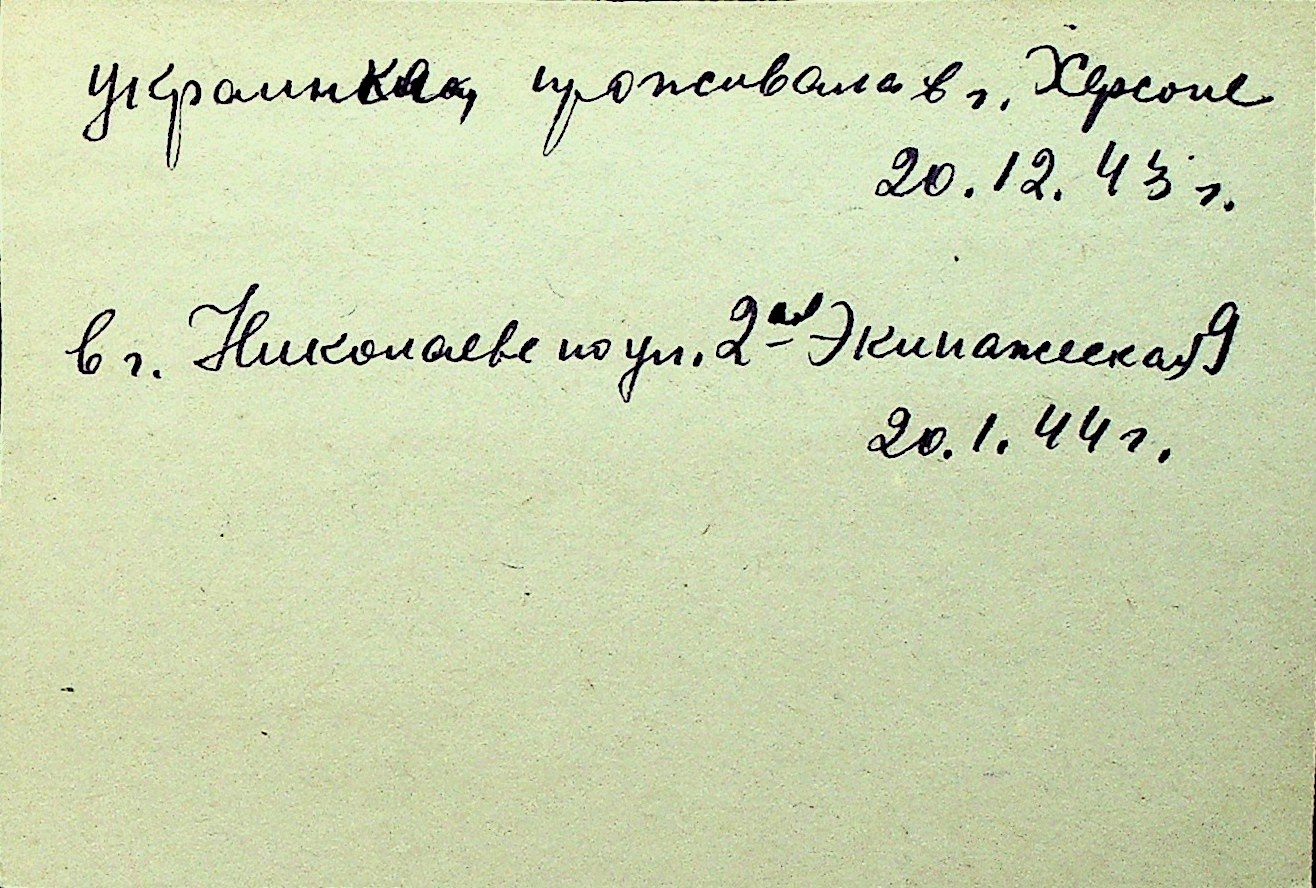 украинка, проживала в г. Херсоне
20.12.43 г.
в г. Николаеве по ул. 2ая Экипажеская 9
20.1.44 г.